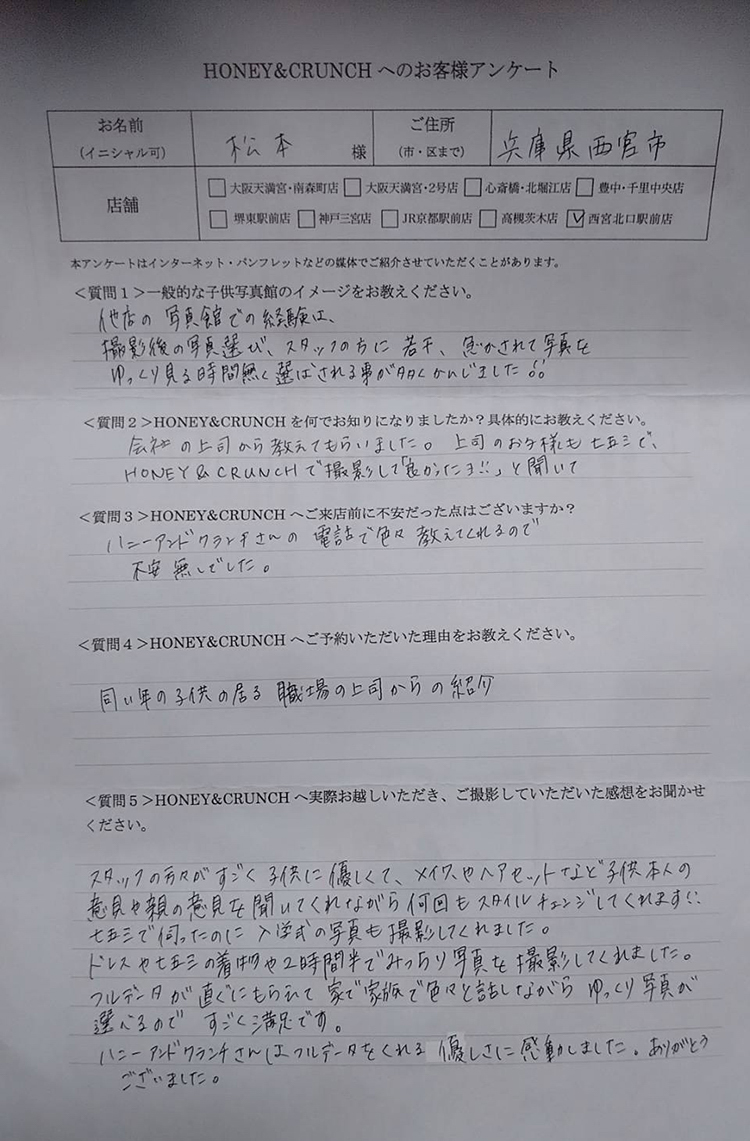 HONEY&CRUNCH へのお客様アンケート
お名前
(イニシャル可)
松本
様
ご住所
(市・区まで)
兵庫県西宮市
店舗
□大阪天満宮・南森町店 □大阪天満宮・2号店 □心斎橋・北堀江店 □豊中・千里中央店
□堺東駅前店 □神戸三宮店 □JR京都駅前店 □高槻茨木店 ☑西宮北口駅前店
本アンケートはインターネット・パンフレットなどの媒体でご紹介させていただくことがあります。
<質問1>一般的な子供写真館のイメージをお教えください。
他店の写真館での経験は、
撮影後の写真選び、スタッフの方に若干、急かされて写真を
ゆっくり見る時間無く選ばされる事が多くかんじました
<質問2>HONEY&CRUNCH を何でお知りになりましたか?具体的にお教えください。
会社の上司から教えてもらいました。上司のお子様も七五三で、
HONEY&CRUNCHで撮影して「良かったヨ!!」と聞いて
<質問3>HONEY&CRUNCH へご来店前に不安だった点はございますか?
ハニーアンドクランチさんの電話で色々教えてくれるので
不安無しでした。
<質問4>HONEY&CRUNCH へご予約いただいた理由をお教えください。
同い年の子供の居る職場の上司からの紹介
<質問5>HONEY&CRUNCH へ実際お越しいただき、ご撮影していただいた感想をお聞かせ
ください。
スタッフの方々がすごく子供に優しくて、メイクやヘアセットなど子供本人の
意見や親の意見を聞いてくれながら何回もスタイルチェンジしてくれます!!
七五三で伺ったのに入学式の写真も撮影してくれました。
ドレスや七五三の着物や2時間半でみっちり写真を撮影してくれました。
フルデータが直ぐにもらえて家で家族で色々と話しながらゆっくり写真が
選べるのですごく満足です。
ハニーアンドクランチさんはフルデータをくれる優しさに感動しました。ありがとう
ございました。